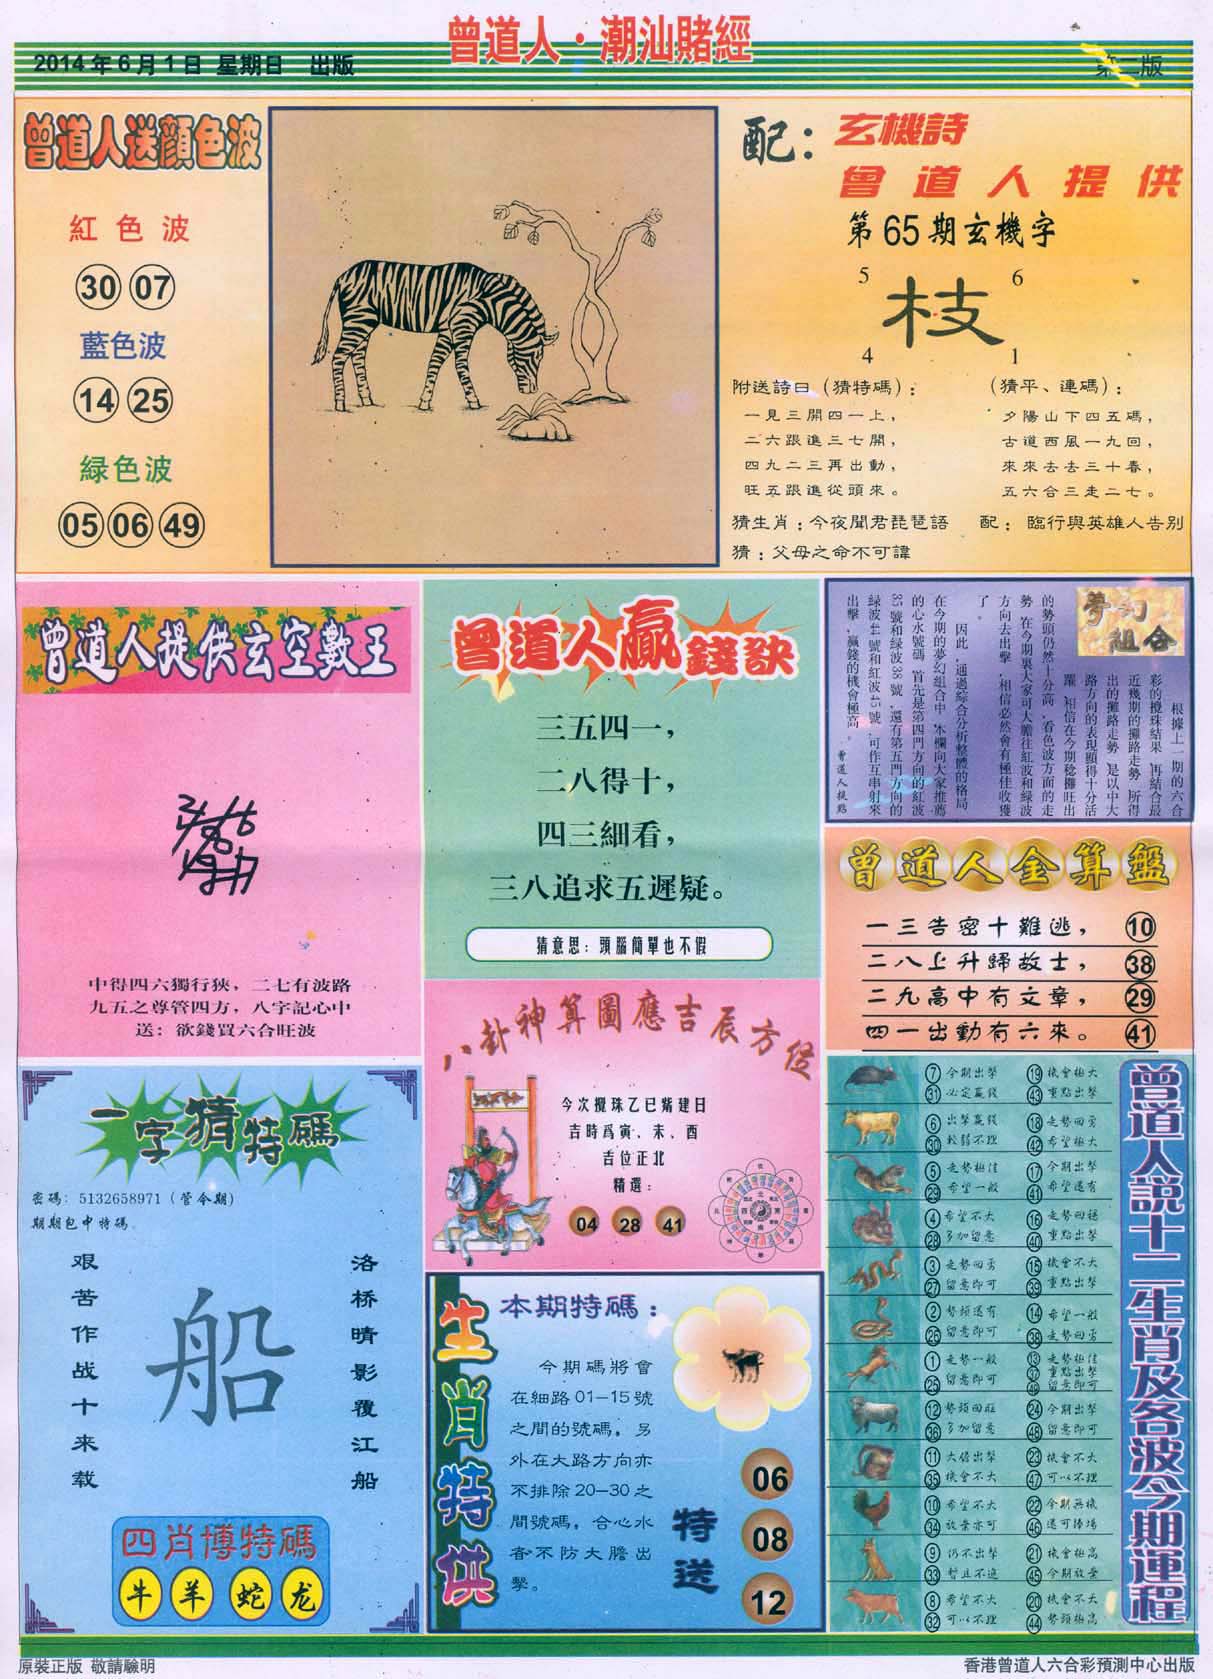 曾道人·潮汕賭經
2014年6月1日 星期日 出版
第二版
曾道人送顔色波
紅色波
30 07
藍色波
14 25
緑色波
05 06 49
配：
玄機詩
曾道人提供
第65期玄機字
5 6
枝
4 1
附送詩曰（猜特碼）：
一見三開四一上，
二六跟進三七開，
四九二三再出動，
旺五跟進從頭來。
（猜平、連碼）：
夕陽山下四五碼，
古道西風一九回，
來來去去三十春，
五六合三走二七。
猜生肖：今夜聞君琵琶語
配：臨行與英雄人告别
猜：父母之命不可諱
曾道人提供玄空數王
中得四六獨行狹，二七有波路
九五之尊管四方，八字記心中
送：欲錢買六合旺波
曾道人贏錢訣
三五四一，
二八得十，
四三細看，
三八追求五遲疑。
猜意思：頭腦簡單也不假
夢幻
組合
根據上一期的六合
彩的攪珠結果，再結合最
近幾期的攤路走勢，所得
出的攤路走勢，是以中大
路方向的表現顯得十分活
躍，相信在今期稔攤旺出
的勢頭仍然十分高，看色波方面的走
勢，在今期裏大家可大膽往紅波和緑波
方向去出擊，相信必然會有極佳收獲
了。
因此，通過綜合分析整體的格局，
在今期的夢幻組合中，本欄向大家推薦
的心水號碼，首先是第四門方向的紅波
35號和緑波38號，還有第五門方向的
緑波44號和紅波45號，可作互串射來
出擊，贏錢的機會極高。
曾道人提點
曾道人金算盤
一三告密十難逃， 10
二八上升歸故士， 38
二九高中有文章， 29
四一出動有六來。 41
八卦神算圖應吉辰方位
今次攪珠乙巳觜建日
吉時爲寅、未、酉
吉位正北
精選：
04 28 41
一字猜特碼
密碼：5132658971（管令期）
期期包中特碼
艰苦作战十来载
船
洛桥晴影覆江船
四肖博特碼
牛 羊 蛇 龙
生肖特供
本期特碼：
今期碼將會
在細路01—15號
之間的號碼，另
外在大路方向亦
不排除20—30之
間號碼，合心水
者不防大膽出
擊。
特送
06
08
12
曾道人説十二生肖及各波今期運程
7 今期出擊 19 機會極大
31 必定贏錢 43 重點出擊
6 出擊贏錢 18 走勢回勇
30 較弱不理 42 希望極大
5 走勢極佳 17 今期出擊
29 希望一般 41 希望還有
4 希望不大 16 走勢回穩
28 多加留意 40 重點出擊
3 走勢回勇 15 機會不大
27 留意即可 39 重點出擊
2 勢頭還有 14 希望一般
26 留意即可 38 走勢回勇
1 走勢一般 13 走勢極佳
25 留意即可 37 重點出擊
49 留意即可
12 勢頭回旺 24 今期出擊
36 多加留意 48 留意即可
11 大膽出擊 23 機會不大
35 機會不大 47 可以不理
10 希望不大 22 今期無機
34 放棄亦可 46 還可捧場
9 仍不出擊 21 機會極高
33 暫且不追 45 今期放棄
8 希望不大 20 機會不大
32 可以不理 44 勢頭極高
原裝正版 敬請驗明
香港曾道人六合彩預測中心出版